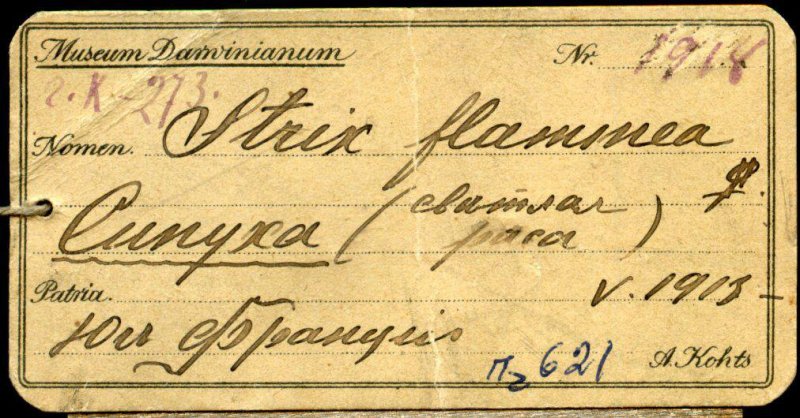 Museum Darwinianum Nr. 1914
г. K - 273.
Nomen. Strix flammea
Сипуха (светлая раса)
Patria. V. 1913
Юг Франции
Пг 621 A. Kohts